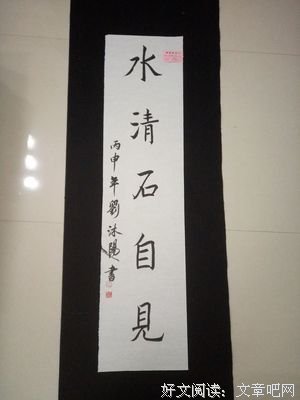 水清石自見
丙申年劉沐陽書
好文阅读：文章吧网